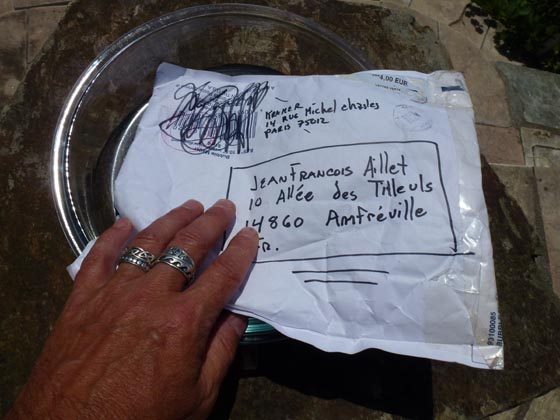 4,00 EUR
KRAMER
14 RUE Michel Chasles
PARIS 75012
JEANFRANCOIS Aillet
10 Allée des Tilleuls
14860 Amfréville
FR.